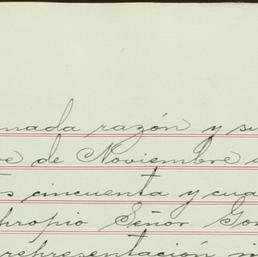 mada razón y su
de Noviembre
cincuenta y cua
propio Señor Gon
representación